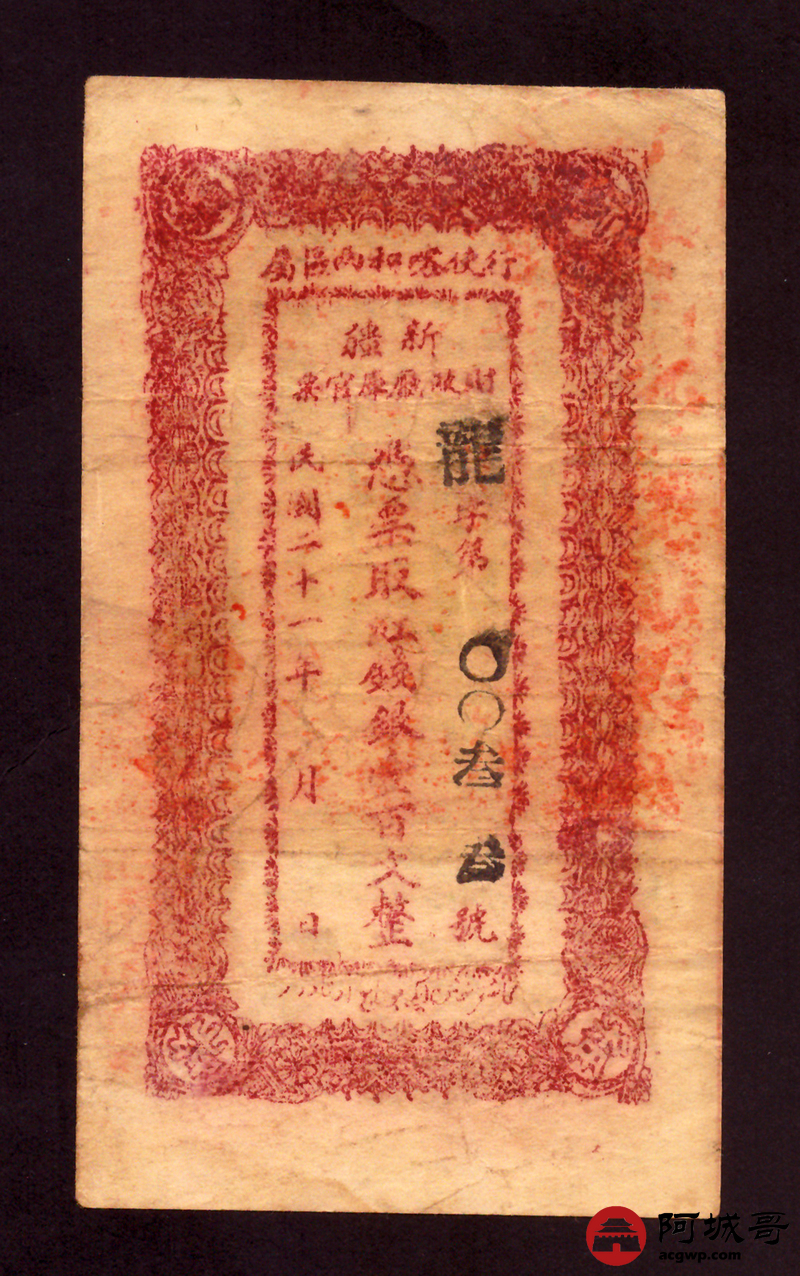 行使喀和两區屬
新疆
財政廳庫官票
龍字第〇〇叁叁號
憑票取紅錢銀壹百文整
民國二十一年 月 日
阿城哥
acgwp.com